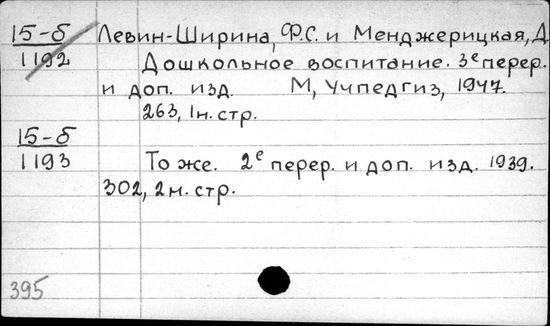 15-б Левин-Ширина, Ф.С. и Менджерицкая, Д.
1192 Дошкольное воспитание. 3е перер.
и доп. изд. М, Учпедгиз, 1947.
263, 1н. стр.
15-б
1193 То же. 2е перер. и доп. изд. 1939.
302, 2н. стр.
395